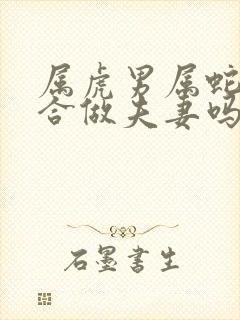 属虎男属蛇
合做夫妻吗
石墨書生